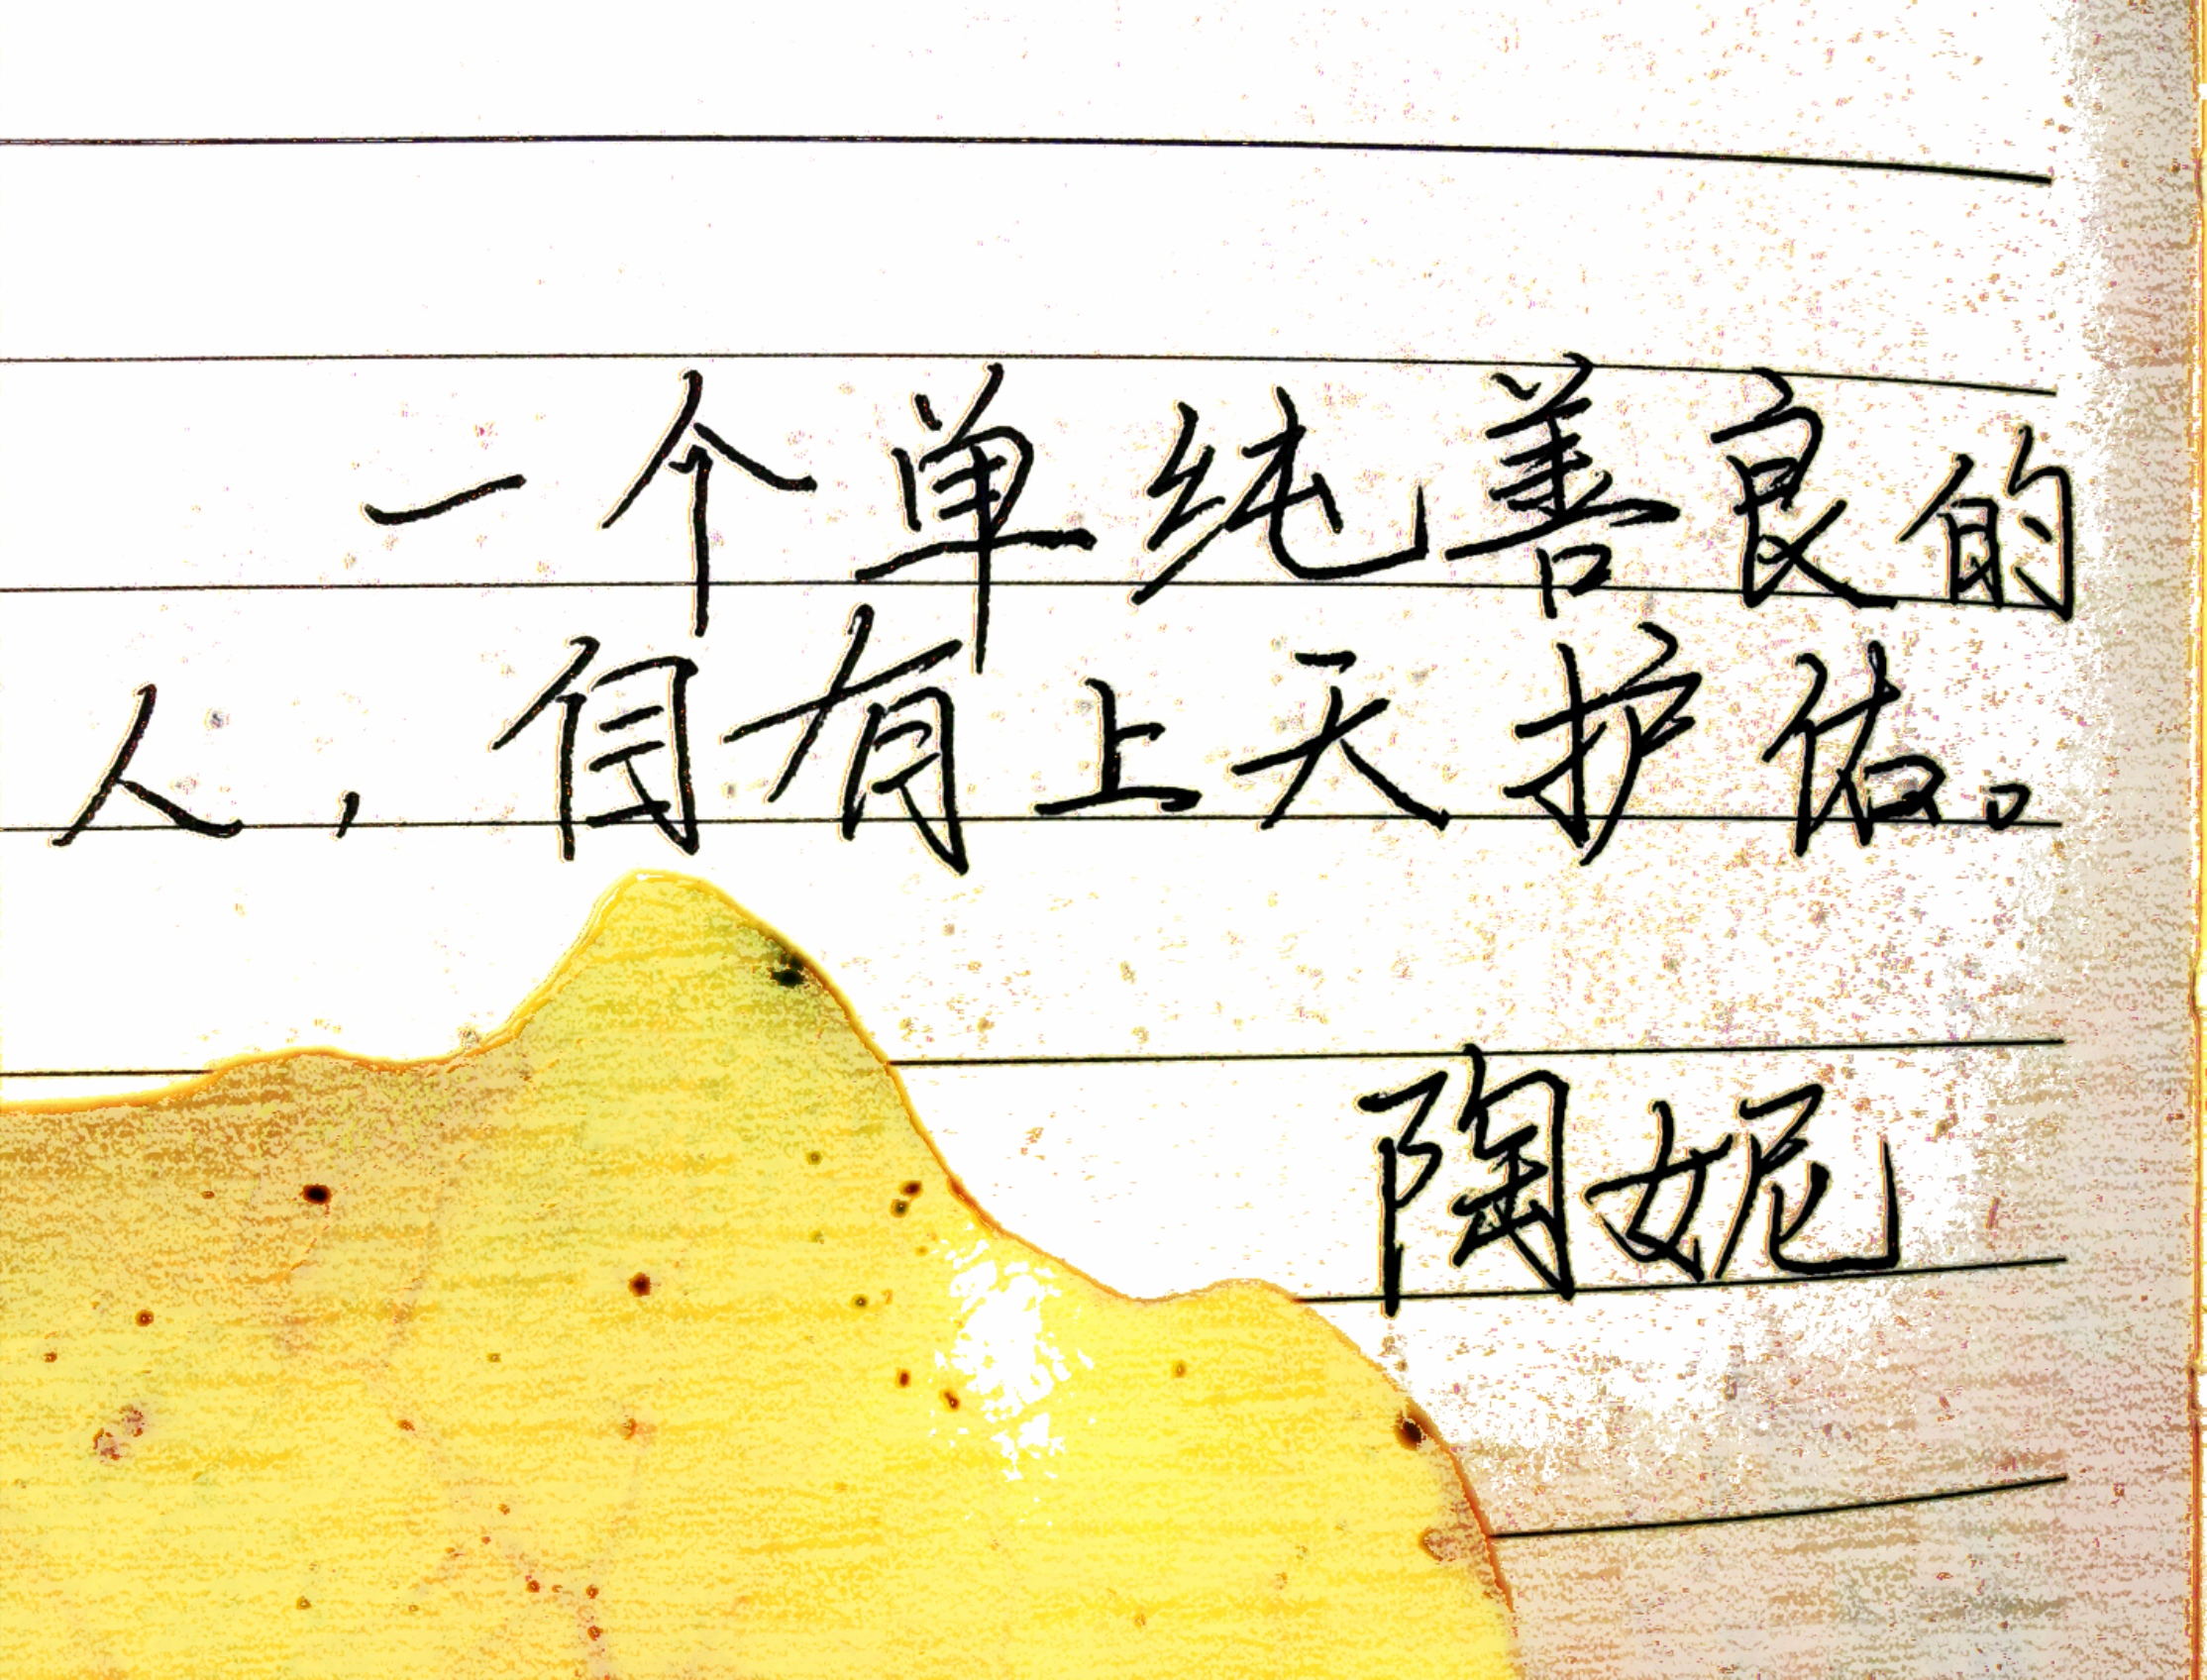 一个单纯善良的
人，自有上天护佑。
陶妮